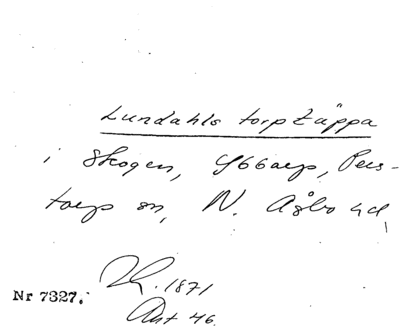 Lundahls torptäppa
i Skogen, Ybbarp, Pers-
torp sn, N. Åsbo hd,
1871
Nr 7327.
Ant 46.